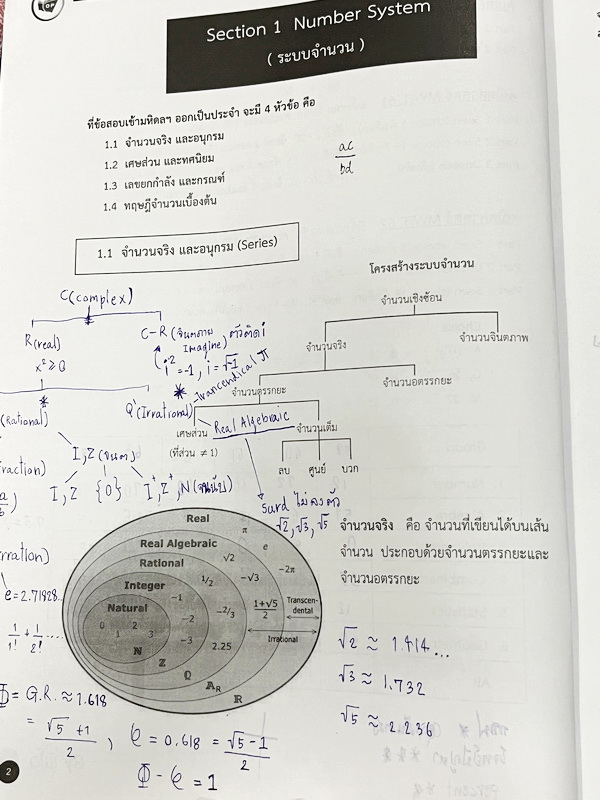 Section 1 Number System
( ระบบจำนวน )
ที่ข้อสอบเข้ามหิดลฯ ออกเป็นประจำ จะมี 4 หัวข้อ คือ
1.1 จำนวนจริง และอนุกรม
1.2 เศษส่วน และทศนิยม
1.3 เลขยกกำลัง และกรณฑ์
1.4 ทฤษฎีจำนวนเบื้องต้น
ac
bd
1.1 จำนวนจริง และอนุกรม (Series)
โครงสร้างระบบจำนวน
จำนวนเชิงซ้อน
จำนวนจริง
จำนวนจินตภาพ
จำนวนตรรกยะ
จำนวนอตรรกยะ
เศษส่วน
(ที่ส่วน ≠ 1)
จำนวนเต็ม
ลบ ศูนย์ บวก
C(complex)
R(real)
x² ≥ 0
C-R (จินตภาพ
Imagine) ตัวติด i
i² = -1, i = √-1
Trancendical π
Q'(Irrational)
Real Algebraic
Rational)
I, Z (จน.ต)
raction)
a/b)
I, Z {0} I⁺, Z⁺, N (จน.นับ)
surd ไม่ลงตัว
√2, √3, √5
จำนวนจริง คือ จำนวนที่เขียนได้บนเส้น
จำนวน ประกอบด้วยจำนวนตรรกยะและ
จำนวนอตรรกยะ
Real
π
Real Algebraic
√2
e
Rational
1/2
-√3
-2π
Integer
-1
Natural
0 1 2 3
-2
-3
-2/3
2.25
1+√5
2
Transcen-
dental
Irrational
N
Z
Q
A_R
R
e = 2.71828..
1/1! + 1/2! ....
Φ = G.R. ≈ 1.618
= √5 +1 / 2 , φ = 0.618 = √5 - 1 / 2
Φ - φ = 1
√2 ≈ 1.414...
√3 ≈ 1.732
√5 ≈ 2.236
2